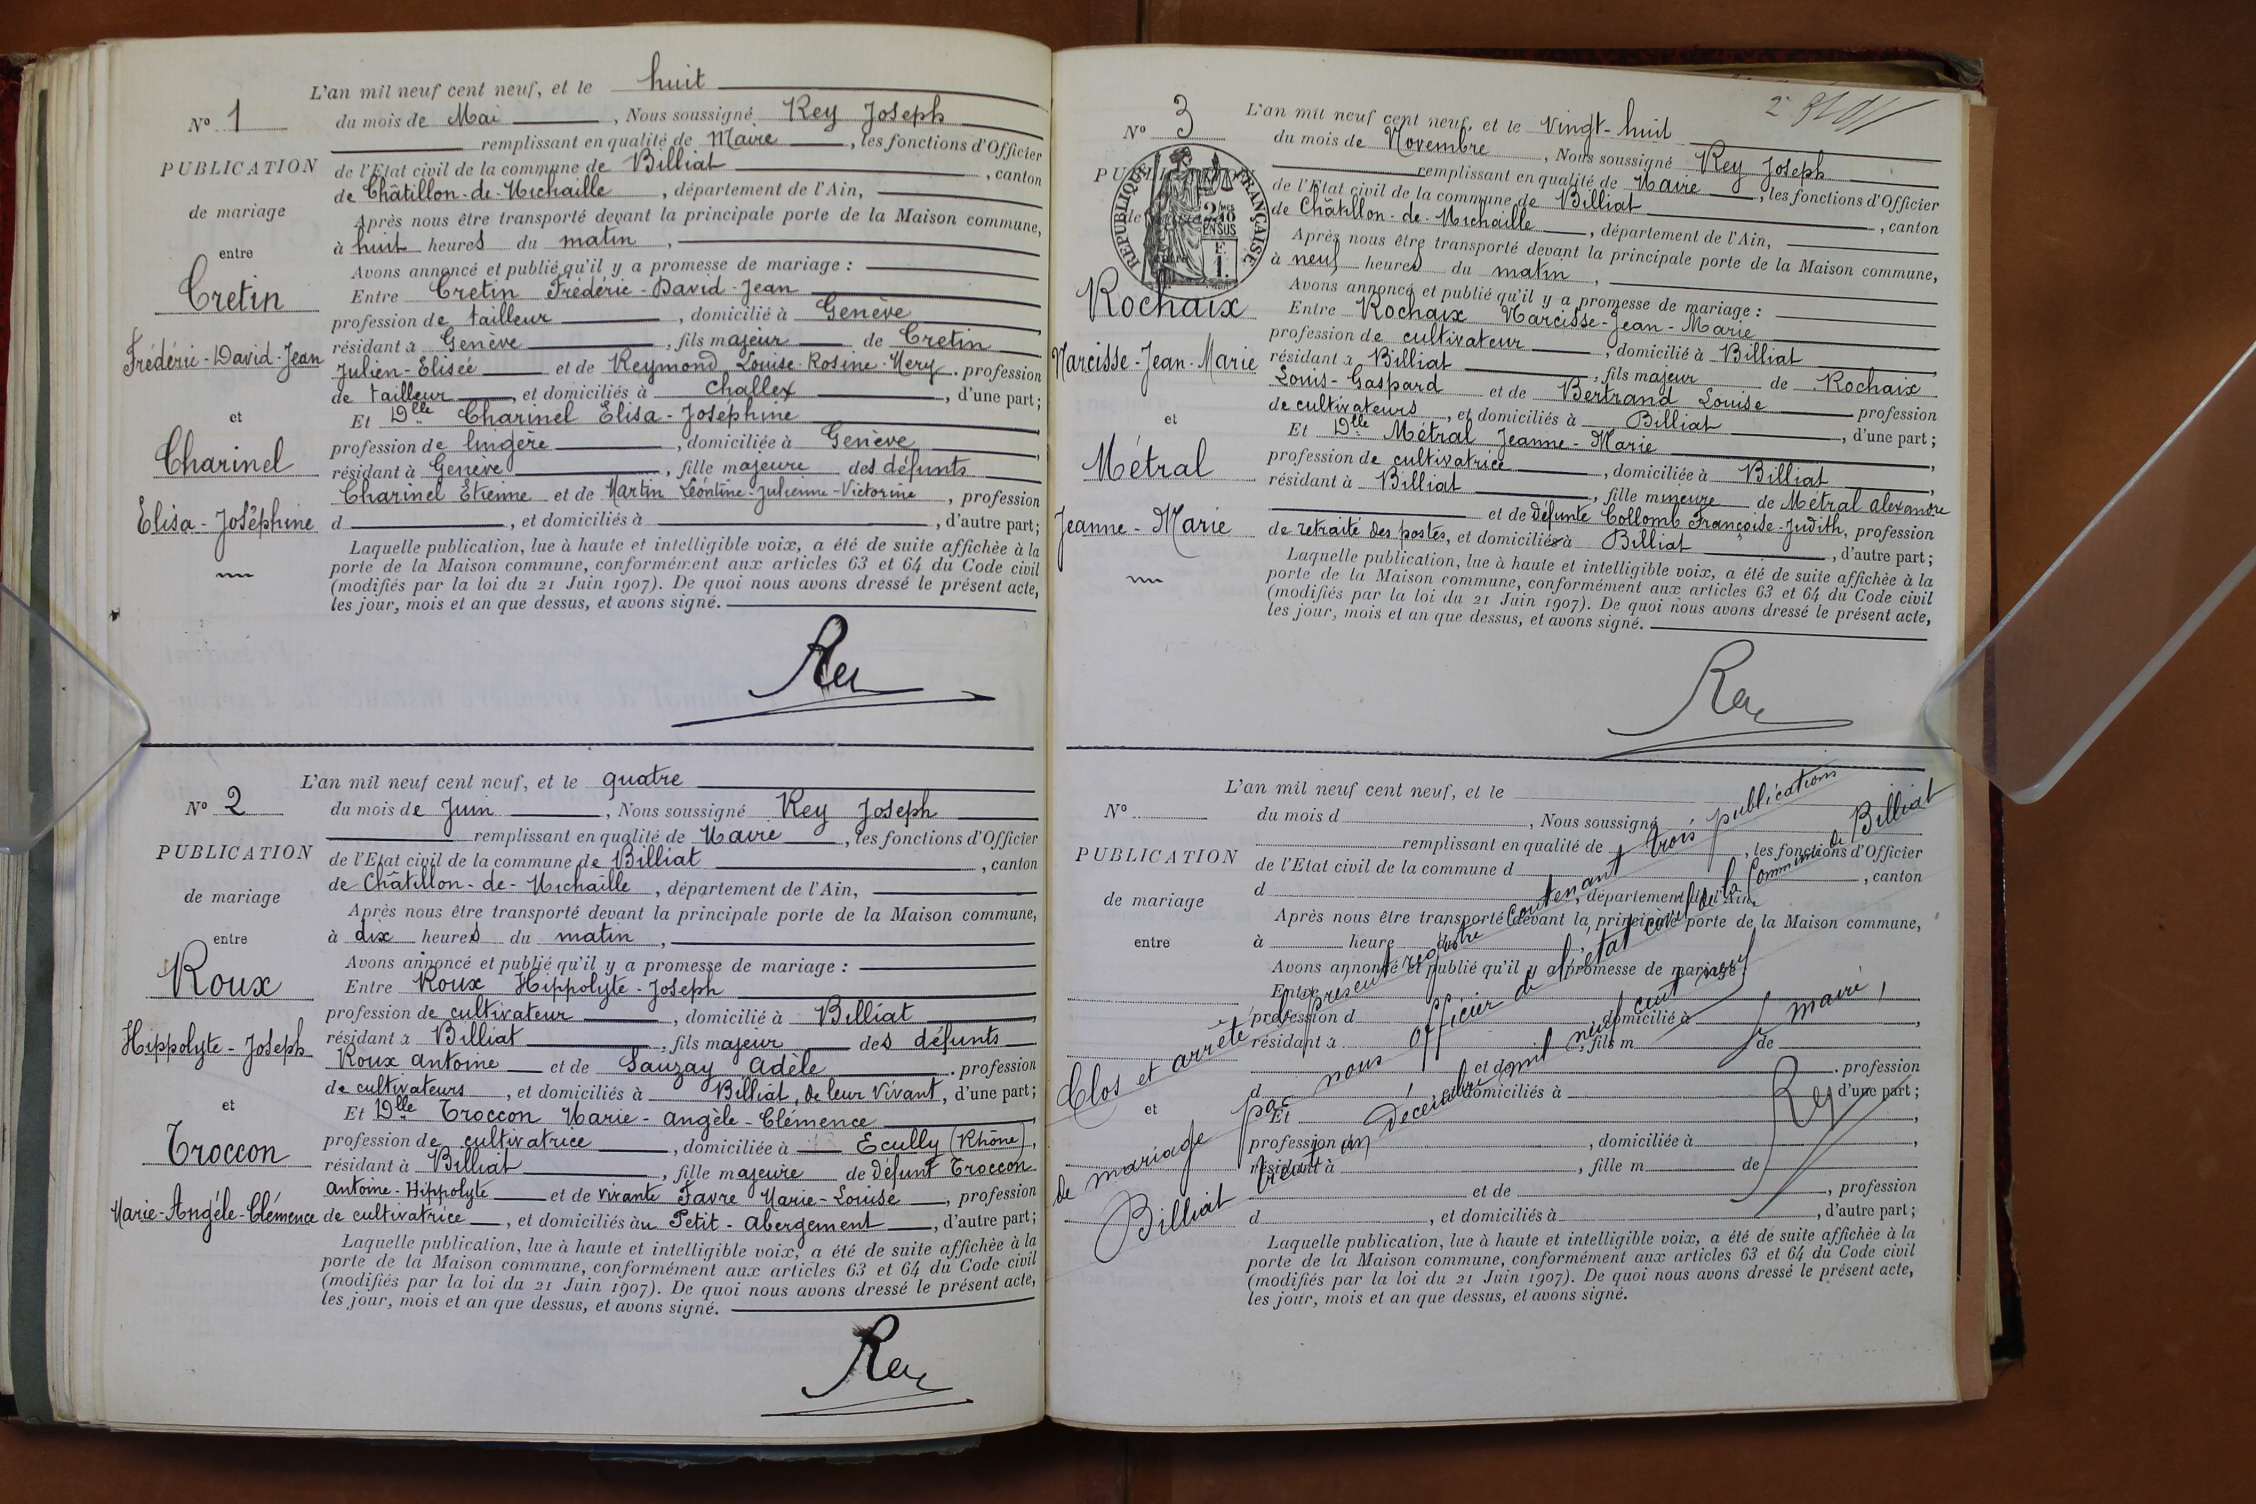 L'an mil neuf cent neuf, et le huit
N° 1
du mois de Mai, Nous soussigné Rey Joseph
remplissant en qualité de Maire, les fonctions d'Officier
PUBLICATION
de l'Etat civil de la commune de Billiat, canton
de Châtillon-de-Michaille, département de l'Ain,
de mariage
Après nous être transporté devant la principale porte de la Maison commune,
à huit heures du matin,
entre
Avons annoncé et publié qu'il y a promesse de mariage :
Cretin
Entre Cretin Frédéric-David-Jean
profession de tailleur, domicilié à Genève
Frédéric-David-Jean
résidant à Genève, fils majeur de Cretin
Julien-Eliseé et de Reymond Louise-Rosine-Mery. profession
de tailleur, et domiciliés à Challex, d'une part;
et
Et Dlle Charinel Elisa-Joséphine
profession de lingère, domiciliée à Genève
Charinel
résidant à Genève, fille majeure des défunts
Charinel Etienne et de Martin Léontine-Julienne-Victorine, profession
Elisa-Joséphine
d, et domiciliés à, d'autre part;
Laquelle publication, lue à haute et intelligible voix, a été de suite affichée à la
porte de la Maison commune, conformément aux articles 63 et 64 du Code civil
(modifiés par la loi du 21 Juin 1907). De quoi nous avons dressé le présent acte,
les jour, mois et an que dessus, et avons signé.
Rey
L'an mil neuf cent neuf, et le quatre
N° 2
du mois de Juin, Nous soussigné Rey Joseph
remplissant en qualité de Maire, les fonctions d'Officier
PUBLICATION
de l'Etat civil de la commune de Billiat, canton
de Châtillon-de-Michaille, département de l'Ain,
de mariage
Après nous être transporté devant la principale porte de la Maison commune,
entre
à dix heures du matin,
Avons annoncé et publié qu'il y a promesse de mariage :
Roux
Entre Roux Hippolyte-Joseph
profession de cultivateur, domicilié à Billiat
Hippolyte-Joseph
résidant à Billiat, fils majeur des défunts
Roux Antoine et de Sauzay Adèle. profession
de cultivateurs, et domiciliés à Billiat, de leur vivant, d'une part;
et
Et Dlle Troccon Marie-Angèle-Clémence
profession de cultivatrice, domiciliée à Ecully (Rhône),
Troccon
résidant à Billiat, fille majeure de défunt Troccon
Antoine-Hippolyte et de vivante Favre Marie-Louise, profession
Marie-Angèle-Clémence
de cultivatrice, et domiciliés àu Petit-Abergement, d'autre part;
Laquelle publication, lue à haute et intelligible voix, a été de suite affichée à la
porte de la Maison commune, conformément aux articles 63 et 64 du Code civil
(modifiés par la loi du 21 Juin 1907). De quoi nous avons dressé le présent acte,
les jour, mois et an que dessus, et avons signé.
Rey
L'an mil neuf cent neuf, et le vingt-huit
N° 3
du mois de Novembre, Nous soussigné Rey Joseph
remplissant en qualité de Maire, les fonctions d'Officier
RÉPUBLIQUE FRANÇAISE
de l'Etat civil de la commune de Billiat, canton
de Châtillon-de-Michaille, département de l'Ain,
Après nous être transporté devant la principale porte de la Maison commune,
à neuf heures du matin,
Avons annoncé et publié qu'il y a promesse de mariage :
Rochaix
Entre Rochaix Narcisse-Jean-Marie
profession de cultivateur, domicilié à Billiat
Narcisse-Jean-Marie
résidant à Billiat, fils majeur de Rochaix
Louis-Gaspard et de Bertrand Louise profession
de cultivateurs, et domiciliés à Billiat, d'une part;
et
Et Dlle Métral Jeanne-Marie
profession de cultivatrice, domiciliée à Billiat
Métral
résidant à Billiat, fille mineure de Métral Alexandre
et de défunte Collomb Françoise-Judith, profession
Jeanne-Marie
de retraité des postes, et domiciliés à Billiat, d'autre part;
Laquelle publication, lue à haute et intelligible voix, a été de suite affichée à la
porte de la Maison commune, conformément aux articles 63 et 64 du Code civil
(modifiés par la loi du 21 Juin 1907). De quoi nous avons dressé le présent acte,
les jour, mois et an que dessus, et avons signé.
Rey
L'an mil neuf cent neuf, et le
N°
du mois d, Nous soussigné
remplissant en qualité de, les fonctions d'Officier
PUBLICATION
de l'Etat civil de la commune d, canton
d, département de l'Ain,
de mariage
Après nous être transporté devant la principale porte de la Maison commune,
entre
à heure du
Avons annoncé et publié qu'il y a promesse de mariage :
Entre
profession d, domicilié à,
résidant à, fils m de
et de. profession
d, et domiciliés à, d'une part;
et
Et
profession d, domiciliée à,
résidant à, fille m de
et de, profession
d, et domiciliés à, d'autre part;
Laquelle publication, lue à haute et intelligible voix, a été de suite affichée à la
porte de la Maison commune, conformément aux articles 63 et 64 du Code civil
(modifiés par la loi du 21 Juin 1907). De quoi nous avons dressé le présent acte,
les jour, mois et an que dessus, et avons signé.
Clos et arrêté le présent registre contenant trois publications
de mariage par nous officier de l'état civil de la Commune de Billiat
Billiat trente un Décembre mil neuf cent neuf
le maire,
Rey